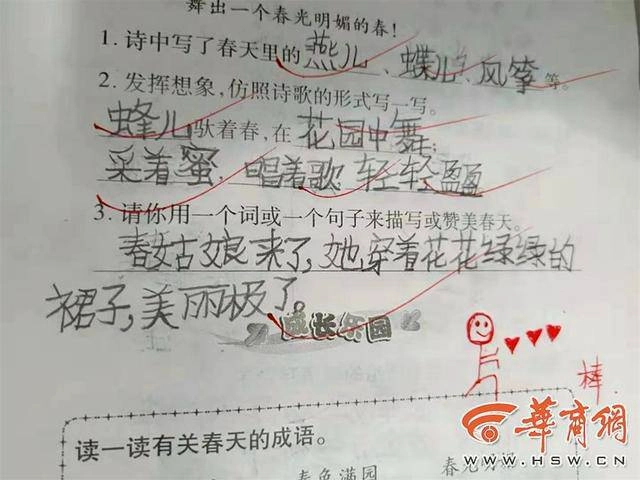 舞出一个春光明媚的春!
1. 诗中写了春天里的燕儿、蝶儿、风筝等。
2. 发挥想象,仿照诗歌的形式写一写。
蜂儿驮着春,在花园中舞;
采着蜜,唱着歌 轻轻盈盈
3. 请你用一个词或一个句子来描写或赞美春天。
春姑娘来了,她穿着花花绿绿的
裙子,美丽极了。
成长乐园
棒
华商网
WWW.HSW.CN
读一读有关春天的成语。
春色满园